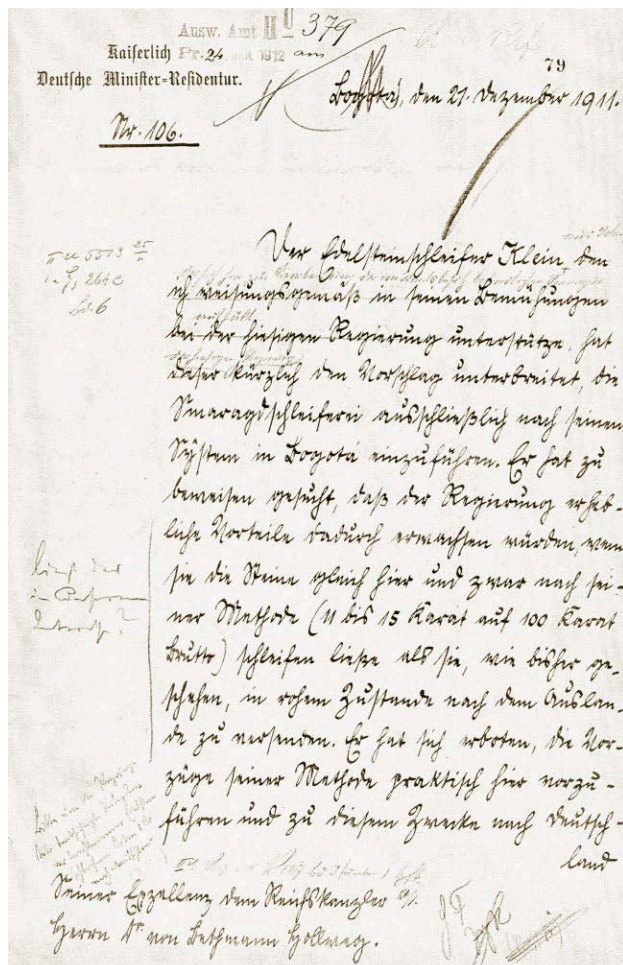 Ausw. Amt II u 379
Kaiserlich
Pr. 24 1912 am
79
Deutsche Minister-Residentur.
Bogotá, den 21. Dezember 1911.
Nr. 106.
II u 5573
Bd. 6
Der Edelsteinschleifer Klein, den
ich weisungsgemäß in seinen Bemühungen
bei der hiesigen Regierung unterstütze, hat
dieser kürzlich den Vorschlag unterbreitet, die
Smaragdschleiferei ausschließlich nach seinem
System in Bogotá einzuführen. Er hat zu
beweisen gesucht, daß der Regierung erheb-
liche Vorteile dadurch erwachsen würden, wenn
sie die Steine gleich hier und zwar nach sei-
ner Methode (11 bis 15 Karat auf 100 Karat
Brutto) schleifen ließe als sie, wie bisher ge-
schehen, in rohem Zustande nach dem Auslan-
de zu versenden. Er hat sich erboten, die Vor-
züge seiner Methode praktisch hier vorzu-
führen und zu diesem Zwecke nach Deutsch-
land
Liegt das
in
Interesse?
Seiner Exzellenz dem Reichskanzler
Herrn Dr. von Bethmann Hollweg.